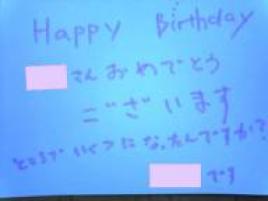 Happy Birthday
さんおめでとう
ございます
ところでいくつになったんですか?
です